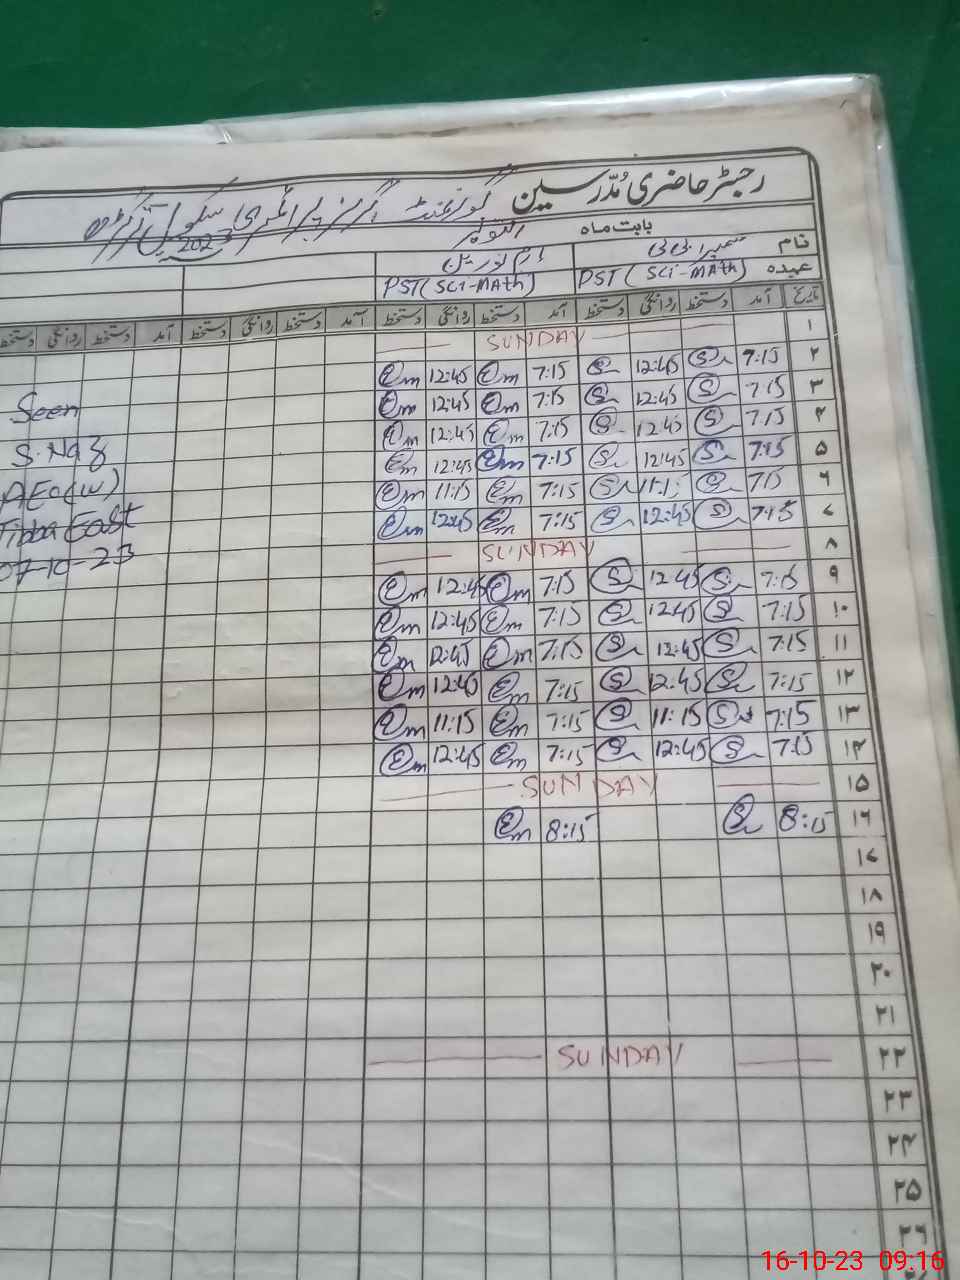 رجسٹر حاضری مُدرّسین گورنمنٹ گرلز پرائمری سکول
بابت ماہ اکتوبر 2023
نام
عہدہ PST (SCI-MAth) PST (SCI-MAth)
تاریخ آمد دستخط روانگی دستخط آمد دستخط روانگی دستخط آمد دستخط روانگی دستخط آمد دستخط روانگی دستخط
۱ SUNDAY
۲ 7:15 S 12:45 S 7:15 Em 12:45 Em
۳ 7:15 S 12:45 S 7:15 Em 12:45 Em
۴ 7:15 S 12:45 S 7:15 Em 12:45 Em
۵ 7:15 S 12:45 S 7:15 Em 12:45 Em
۶ 7:15 S 11:15 S 7:15 Em 11:15 Em
۷ 7:15 S 12:45 S 7:15 Em 12:45 Em
۸ SUNDAY
۹ 7:15 S 12:45 S 7:15 Em 12:45 Em
۱۰ 7:15 S 12:45 S 7:15 Em 12:45 Em
۱۱ 7:15 S 12:45 S 7:15 Em 12:45 Em
۱۲ 7:15 S 12:45 S 7:15 Em 12:45 Em
۱۳ 7:15 S 11:15 S 7:15 Em 11:15 Em
۱۴ 7:15 S 12:45 S 7:15 Em 12:45 Em
۱۵ SUNDAY
۱۶ 8:15 S 8:15 Em
۱۷
۱۸
۱۹
۲۰
۲۱
۲۲ SUNDAY
۲۳
۲۴
۲۵
۲۶
Seen
S.Naz
AEO(W)
Tibba East
07-10-23
16-10-23 09:16